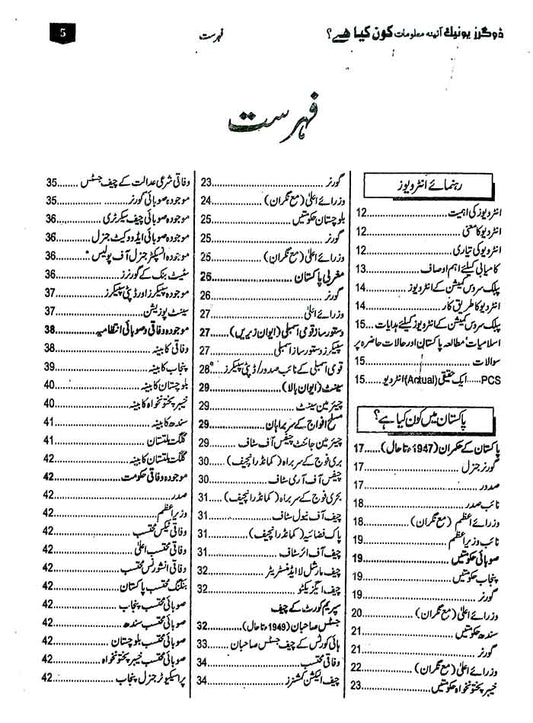 ڈوگرز یونیک آئینہ معلومات کون کیا ھے؟
فہرست
5
فہرست
رہنمائے انٹرویوز
انٹرویوز کی اہمیت 12
انٹرویو کا معنی 12
انٹرویو کی تیاری 12
کامیابی کیلئے اہم اوصاف 13
پبلک سروس کمیشن کے انٹرویوز 14
انٹرویو کا طریق کار 14
پبلک سروس کمیشن کے انٹرویوز کیلئے ہدایات 15
اسلامیات، مطالعہ پاکستان اور حالات حاضرہ پر
سوالات 15
PCS ایک حقیقی (Actual) انٹرویو 15
پاکستان میں کون کیا ہے؟
پاکستان کے حکمران (1947ء تا حال) 17
گورنر جنرل 17
صدور 17
نائب صدر 18
وزرائے اعظم (مع نگران) 18
نائب وزیراعظم 19
صوبائی حکومتیں 19
پنجاب حکومتیں 19
گورنر 19
وزرائے اعلیٰ (مع نگران) 20
سندھ حکومتیں 21
گورنر 21
وزرائے اعلیٰ (مع نگران) 22
خیبر پختونخواہ حکومتیں 23
گورنر 23
وزرائے اعلیٰ (مع نگران) 24
بلوچستان حکومتیں 25
گورنر 25
وزرائے اعلیٰ (مع نگران) 25
مغربی پاکستان 26
گورنر 26
وزرائے اعلیٰ 27
دستور ساز قومی اسمبلی (ایوان زیریں) 27
سپیکرز دستور ساز اسمبلی 27
قومی اسمبلی کے نائب صدور/ڈپٹی سپیکرز 28
سینٹ (ایوان بالا) 29
چیئرمین سینٹ 29
مسلح افواج کے سربراہان 29
چیئرمین جائنٹ چیفس آف سٹاف 29
بری فوج کے سربراہ (کمانڈر انچیف) 30
چیفس آف آرمی سٹاف 30
بحری فوج کے سربراہ (کمانڈر انچیف) 31
چیف آف نیول سٹاف 31
پاک فضائیہ (کمانڈر انچیف) 31
چیف آف ائر سٹاف 31
چیف مارشل لا ایڈمنسٹریٹر 32
چیف ایگزیکٹو 32
سپریم کورٹ کے چیف
جسٹس صاحبان (1949ء تا حال) 32
ہائی کورٹس کے چیف جسٹس صاحبان 33
وفاقی محتسب 34
چیف الیکشن کمشنرز 34
وفاقی شرعی عدالت کے چیف جسٹس 35
موجودہ صوبائی گورنرز 35
موجودہ صوبائی چیف سیکرٹری 36
موجودہ صوبائی ایڈووکیٹ جنرل 36
موجودہ انسپکٹر جنرل آف پولیس 36
سٹیٹ بنک کے گورنرز 36
موجودہ سپیکرز اور ڈپٹی سپیکرز 37
سینٹ پوزیشن 37
موجودہ وفاقی و صوبائی انتظامیہ 38
وفاقی کابینہ 38
پنجاب کابینہ 39
بلوچستان کابینہ 40
خیبر پختونخواہ کابینہ 40
سندھ کابینہ 41
گلگت بلتستان 41
گلگت بلتستان کابینہ 42
موجودہ وفاقی حکومت 42
صدر 42
وزیراعظم 42
وفاقی ٹیکس محتسب 42
وفاقی محتسب اعلیٰ 42
وفاقی انشورنس محتسب 42
بنکنگ محتسب پاکستان 42
صوبائی محتسب پنجاب 42
صوبائی محتسب سندھ 42
صوبائی محتسب بلوچستان 42
صوبائی محتسب خیبر پختونخواہ 42
پراسیکیوٹر جنرل پنجاب 42